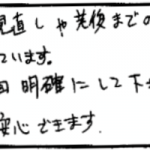 見直しや美俊までの
ています。
回 明確にして下
安心できます.